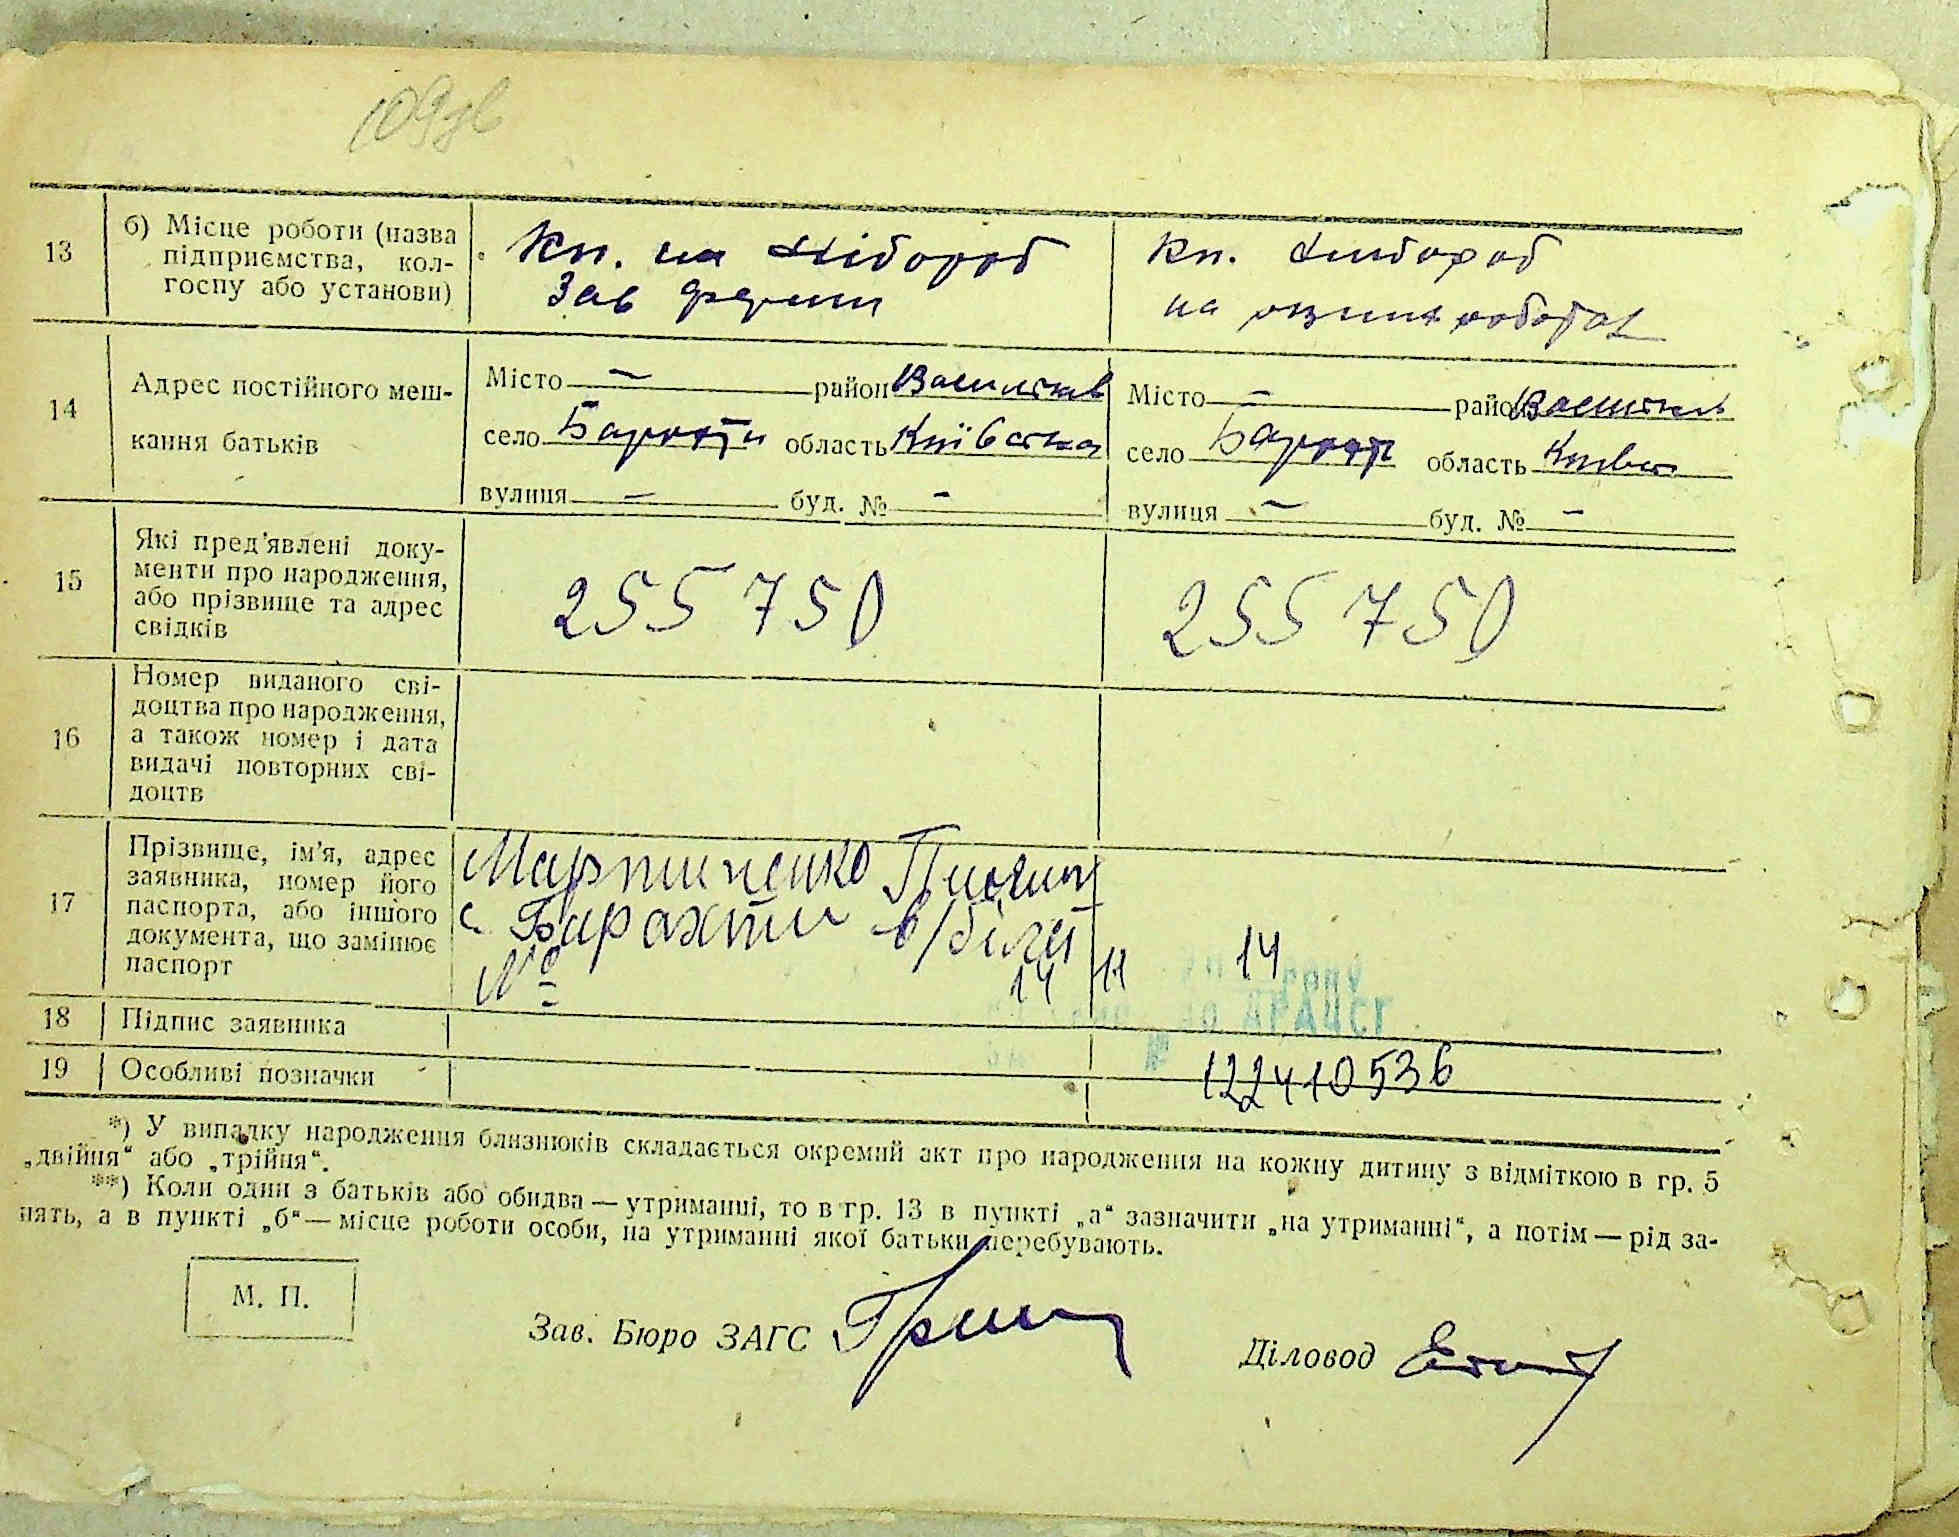 109зв
13
б) Місце роботи (назва
підприємства, кол-
госпу або установи)
Кп. ім Хлібороб
Зав ферми
Кп. Хлібороб
на роботах
14
Адрес постійного меш-
кання батьків
Місто — район Васильків
село Барахти область Київська
вулиця — буд. № —
Місто — район Васильків
село Барахти область Київсь
вулиця — буд. № —
15
Які пред'явлені доку-
менти про народження,
або прізвище та адрес
свідків
255750
255750
16
Номер виданого сві-
доцтва про народження,
а також номер і дата
видачі повторних сві-
доцтв
17
Прізвище, ім'я, адрес
заявника, номер його
паспорта, або іншого
документа, що замінює
паспорт
Мартиненко
с. Барахти в/білет
№ 14 11 14
АРАЦСГ
№
18
Підпис заявника
19
Особливі позначки
122410536
*) У випадку народження близнюків складається окремий акт про народження на кожну дитину з відміткою в гр. 5
„двійня“ або „трійня“.
**) Коли один з батьків або обидва — утриманні, то в гр. 13 в пункті „а“ зазначити „на утриманні“, а потім — рід за-
нять, а в пункті „б“ — місце роботи особи, на утриманні якої батьки перебувають.
М. П.
Зав. Бюро ЗАГС
Діловод